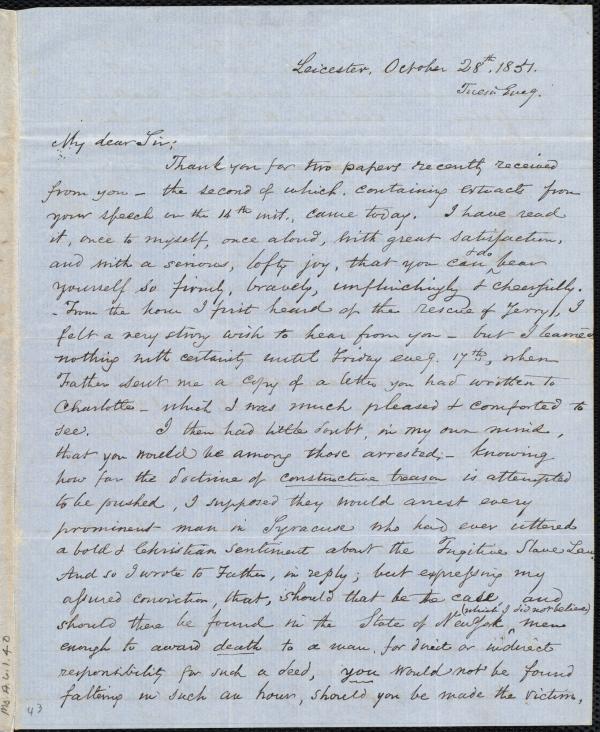 Leicester, October 28th. 1851.
Tues. Eveg.
My dear Sir;
Thank you for two papers recently received
from you – the second of which, containing extracts from
your speech on the 14th inst., came today. I have read
it, once to myself, once aloud, with great satisfaction,
and with a serious, lofty joy, that you can & do bear
yourself so firmly, bravely, unflinchingly & cheerfully.
– From the hour I first heard of the rescue of Jerry, I
felt a very strong wish to hear from you – but I learned
nothing with certainty until Friday eveg. 17th, when
Father sent me a copy of a letter you had written to
Charlotte – which I was much pleased & comforted to
see. I then had little doubt, in my own mind,
that you would be among those arrested; – knowing
how far the doctrine of constructive treason is attempted
to be pushed, I supposed they would arrest every
prominent man in Syracuse who had ever uttered
a bold & Christian sentiment about the Fugitive Slave Law.
And so I wrote to Father, in reply; but expressing my
assured conviction, that, should that be the case, and
should there be found in the State of New York (which I did not believe) men
enough to award death to a man, for direct or indirect
responsibility for such a deed, you would not be found
faltering in such an hour, should you be made the victim.
Ms A.6.1.40
43